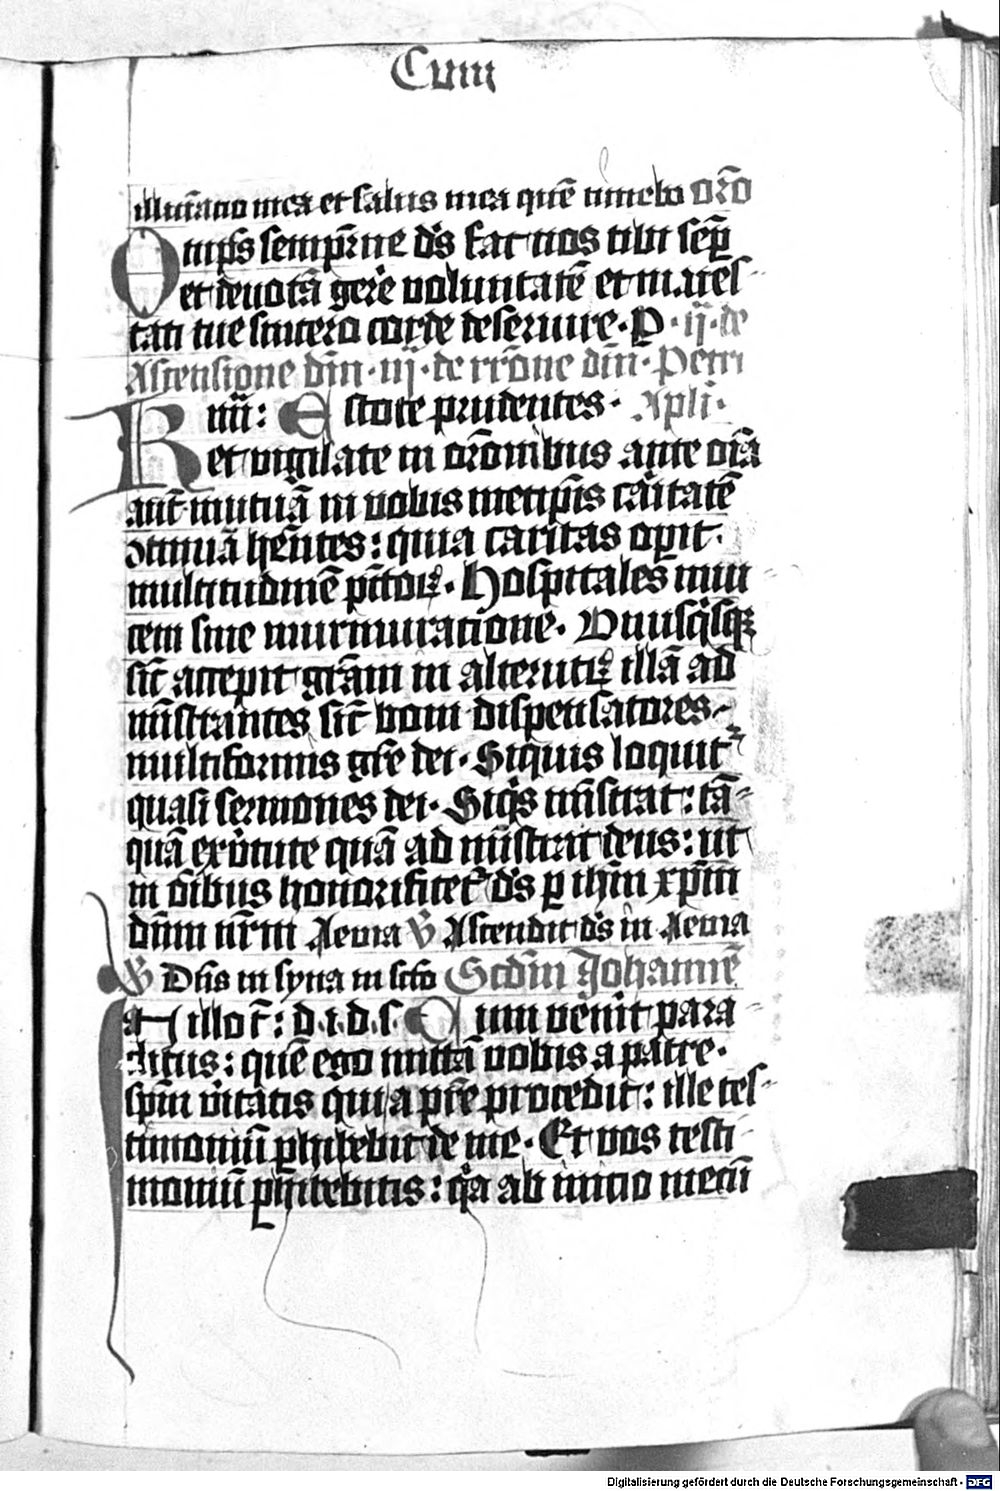 Cum
illuīatio mea et salus mea quē timebo orō
Omps sempit̄ne ds̄ fac nos tibi semp̄
et deuotā gerē voluntatē et maies-
tati tue sincero corde deseruire. P̄ · ij · de
Ascensione dn̄i · iij · de rr̄one dn̄i · Petri
Rm̄i: Estote prudentes · Apli ·
et vigilate in or̄onibus ante oīa
aūt mutuā in vobis metip̄is caritatē
ɔtinuā hn̄tes: quia caritas opit ·
multitudinē pctoꝝ · Hospitales inui
cem sine murmuratione · Vnusqisqꝫ
sic̄ accepit grām in alterutꝝ illā ad
mīstrantes sic̄ boni dispensatores
multiformis gr̄e dei · Siquis loquit᷑
quasi sermones dei · Siqs mīstrat: tā-
quā ex v̾tute quā ad mīstrat deus: ut
in oībus honorificet᷑ ds̄ ꝑ ihm̄ xpm̄
dn̄m nr̄m Aeuia V̄ Ascendit ds̄ in Aeuia
V̄ Dn̄s in syna in scō Scdm̄ Johannē
In illo t̄: d · i · d · s · Cum venit para-
clitus: quē ego mittā vobis a patre ·
spm̄ v̾itatis qui a pr̄e procedit: ille tes-
timoniū ꝑhibebit de me · Et vos testi-
moniū ꝑhibebitis: qa ab inicio mecū
Digitalisierung gefördert durch die Deutsche Forschungsgemeinschaft - DFG